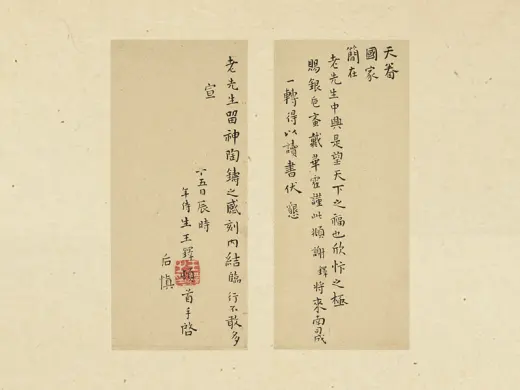 天眷
國家
簡在
老先生中興是望天下之福也欣忭之極
賜銀色壺戴華霍謹此順謝鐸將來南
一轉得以讀書伏懇
老先生留神陶鑄之感刻內結臨行不敢多
宣
六五日辰時
年侍生王鐸頓首手啓
后慎